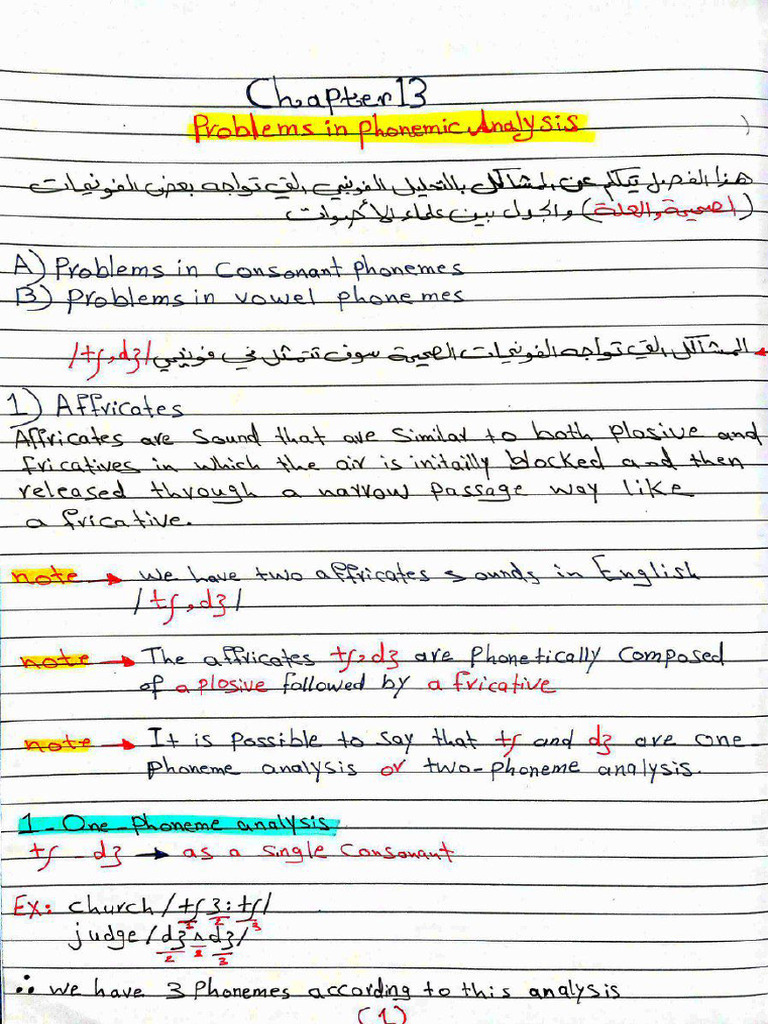 Chapter 13
Problems in phonemic Analysis
هذا الفصل يتكلم عن المشاكل بالتحليل الفونيمي التي تواجه بعض الفونيمات
(الصحيحة والعلة) والجدل بين علماء الأصوات
A) Problems in consonant phonemes
B) Problems in vowel phonemes
المشاكل التي تواجه الفونيمات الصحيحة سوف تتمثل في فونيمي /tʃ, dʒ/
1) Affricates
Affricates are sound that are similar to both plosive and
fricatives in which the air is initailly blocked and then
released through a narrow passage way like
a fricative.
note → we have two affricates sounds in English
/tʃ, dʒ/
note → The affricates tʃ, dʒ are phonetically composed
of a plosive followed by a fricative
note → It is possible to say that tʃ and dʒ are one-
phoneme analysis or two-phoneme analysis.
1 - One-phoneme analysis
tʃ - dʒ → as a single consonant
Ex: church /tʃɜ:tʃ/
1 2 3
judge /dʒʌdʒ/
2 2 3
∴ we have 3 phonemes according to this analysis
(1)